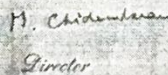 M. Chidambaram
Director